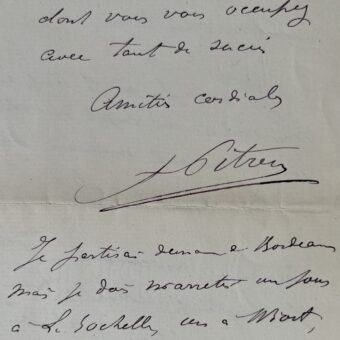 dont vous vous occupez
avec tant de succès
Amitiés cordiales
A Pitres
Je partirai demain à Bordeaux
mais je dois m'arrêter un jour
à La Rochelle, un à Niort,